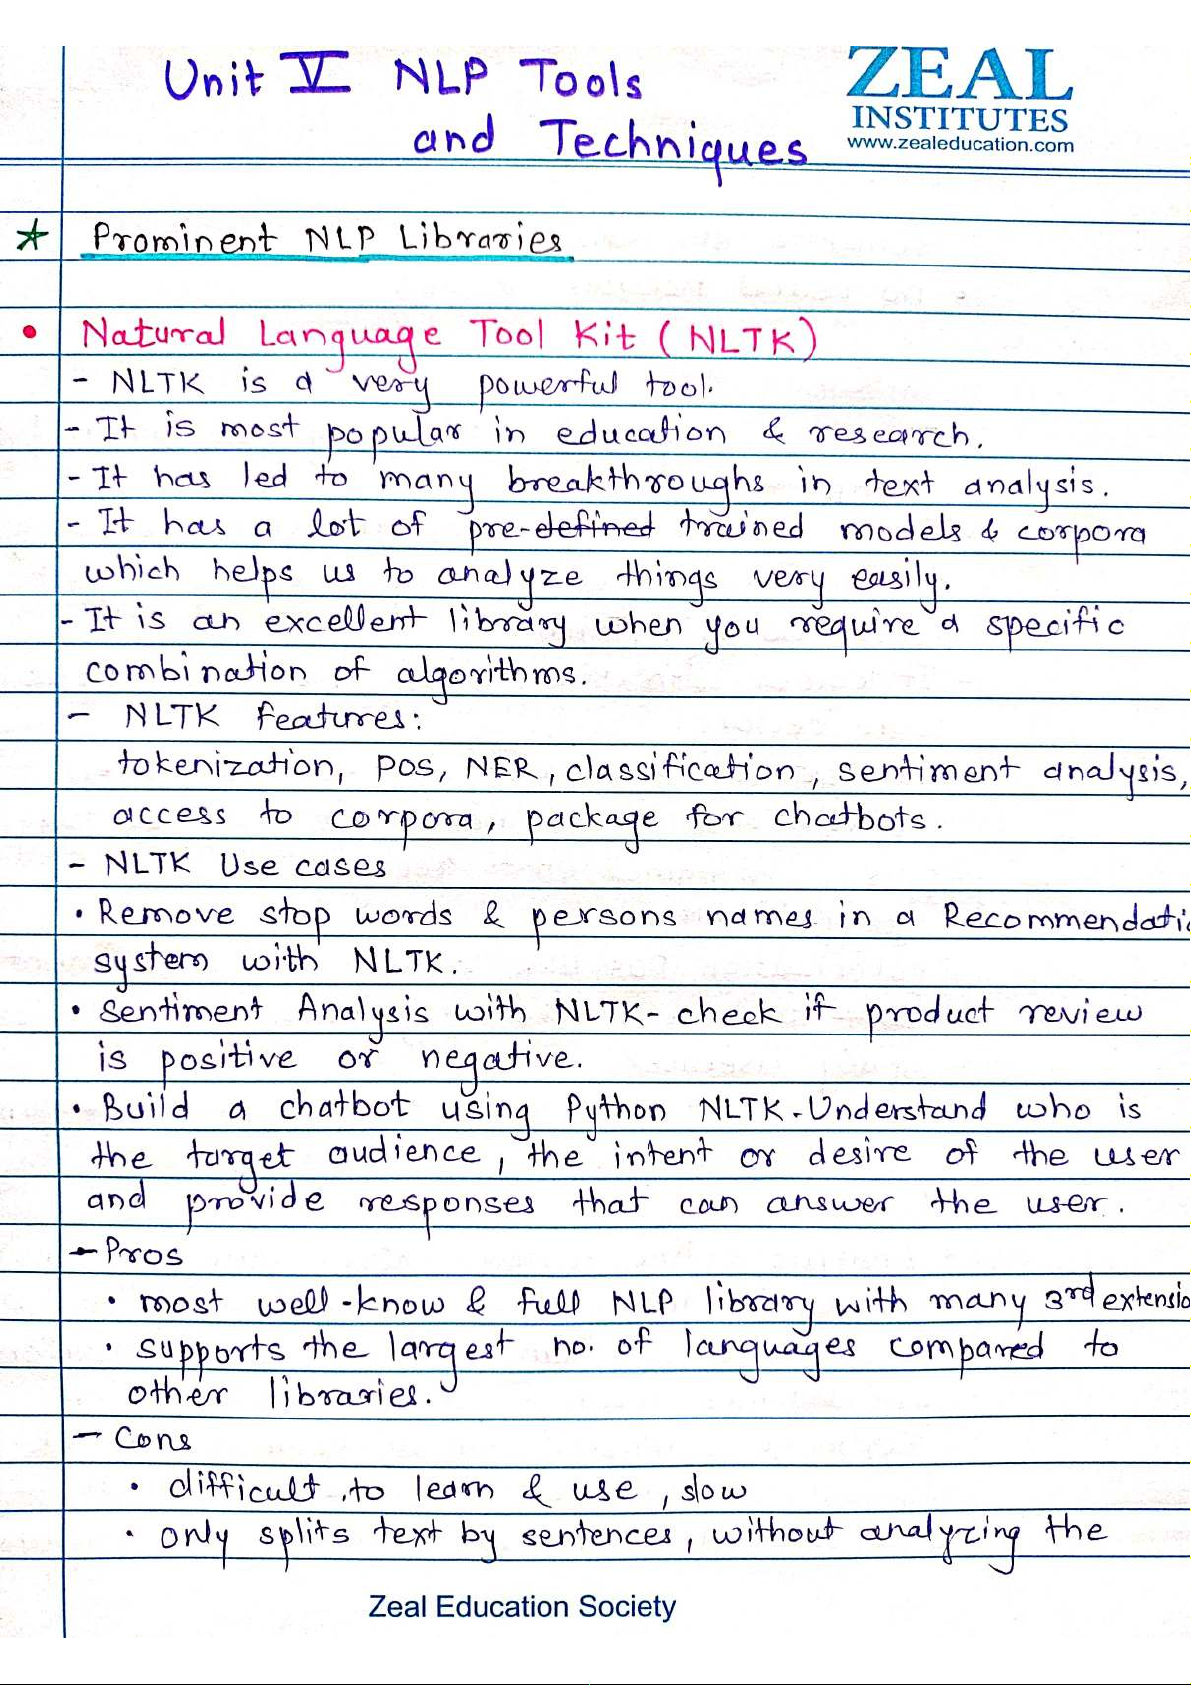 Unit V NLP Tools
and Techniques
ZEAL
INSTITUTES
www.zealeducation.com
Prominent NLP Libraries
• Natural Language Tool Kit (NLTK)
- NLTK is a very powerful tool.
- It is most popular in education & research.
- It has led to many breakthroughs in text analysis.
- It has a lot of pre-defined trained models & corpora
which helps us to analyze things very easily.
- It is an excellent library when you require a specific
combination of algorithms.
- NLTK features:
tokenization, POS, NER, classification, sentiment analysis,
access to corpora, package for chatbots.
- NLTK Use cases
• Remove stop words & persons names in a Recommendati
system with NLTK.
• Sentiment Analysis with NLTK- check if product review
is positive or negative.
• Build a chatbot using Python NLTK. Understand who is
the target audience, the intent or desire of the user
and provide responses that can answer the user.
- Pros
• most well-know & full NLP library with many 3rd extensio
• supports the largest no. of languages compared to
other libraries.
- Cons
• difficult to learn & use, slow
• only splits text by sentences, without analyzing the
Zeal Education Society